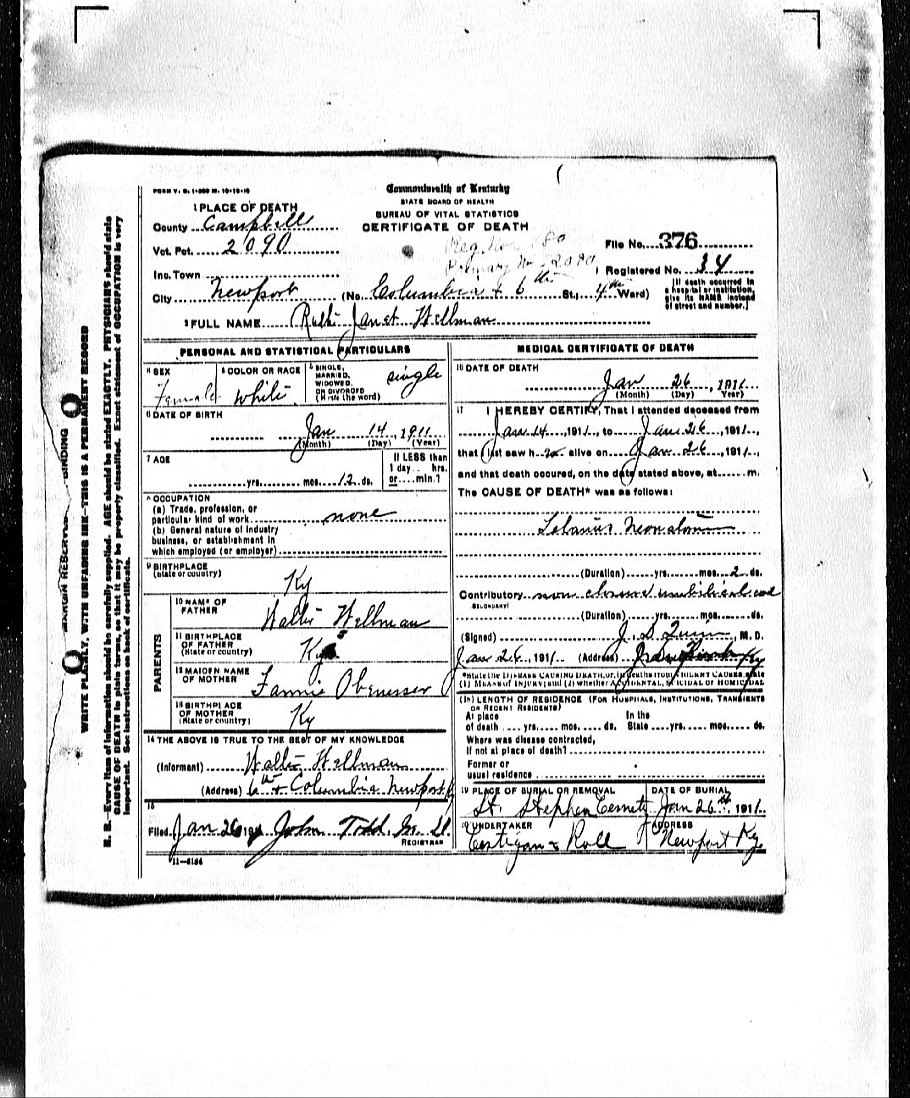 FORM V. S. 1-200 M. 10-19-10
Commonwealth of Kentucky
STATE BOARD OF HEALTH
BUREAU OF VITAL STATISTICS
CERTIFICATE OF DEATH
1 PLACE OF DEATH
County Campbell
Vot. Pct. 2090
Inc. Town
City Newport (No. Columbia & 6th St., 4th Ward)
File No. 376
Registered No. 34
[If death occurred in a hospital or institution, give its NAME instead of street and number.]
2 FULL NAME Ruth Janet Hellman
PERSONAL AND STATISTICAL PARTICULARS
3 SEX Female
4 COLOR OR RACE white
5 SINGLE, MARRIED, WIDOWED, OR DIVORCED (Write the word) single
6 DATE OF BIRTH
Jan 14, 1911
(Month) (Day) (Year)
7 AGE
yrs. mos. 12 ds.
If LESS than 1 day, hrs. or min.?
8 OCCUPATION
(a) Trade, profession, or particular kind of work none
(b) General nature of industry business, or establishment in which employed (or employer)
9 BIRTHPLACE
(State or country) Ky
PARENTS
10 NAME OF FATHER Hellman
11 BIRTHPLACE OF FATHER (State or country) Ky
12 MAIDEN NAME OF MOTHER Fannie
13 BIRTHPLACE OF MOTHER (State or country) Ky
14 THE ABOVE IS TRUE TO THE BEST OF MY KNOWLEDGE
(Informant) Hellman
(Address) 6th & Columbia Newport
15
Filed Jan 26 191 John Todd M. D.
REGISTRAR
11-6184
MEDICAL CERTIFICATE OF DEATH
16 DATE OF DEATH
Jan 26, 1911
(Month) (Day) (Year)
17 I HEREBY CERTIFY, That I attended deceased from
Jan 14, 1911, to Jan 26, 1911,
that I last saw her alive on Jan 26, 1911,
and that death occured, on the date stated above, at m.
The CAUSE OF DEATH* was as follows:
Tetanus
(Duration) yrs. mos. 2 ds.
Contributory non closure umbilical cord
SECONDARY
(Duration) yrs. mos. ds.
(Signed) M. D.
Jan 26, 1911. (Address) Ky
*State the DISEASE CAUSING DEATH, or, in deaths from VIOLENT CAUSES, state
(1) MEANS OF INJURY; and (2) whether ACCIDENTAL, SUICIDAL OR HOMICIDAL
18 LENGTH OF RESIDENCE (FOR HOSPITALS, INSTITUTIONS, TRANSIENTS OR RECENT RESIDENTS)
At place of death yrs. mos. ds. In the State yrs. mos. ds.
Where was disease contracted, if not at place of death?
Former or usual residence
19 PLACE OF BURIAL OR REMOVAL
St. Stephen
DATE OF BURIAL
Jan 26th, 1911.
20 UNDERTAKER
Costigan & Roll
ADDRESS
Newport Ky.
MARGIN RESERVED BINDING
WRITE PLAINLY, WITH UNFADING INK—THIS IS A PERMANENT RECORD
N. B.—Every item of information should be carefully supplied. AGE should be stated EXACTLY. PHYSICIANS should state
CAUSE OF DEATH in plain terms, so that it may be properly classified. Exact statement of OCCUPATION is very
important. See instructions on back of certificate.